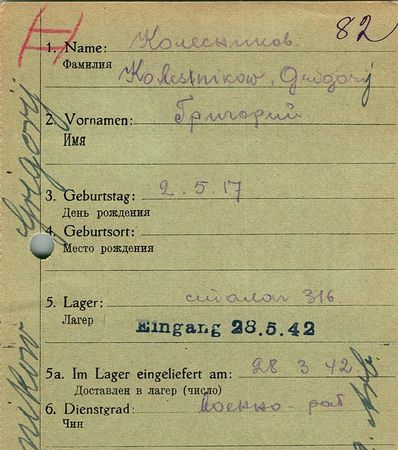 82
1. Name: Колесников
Фамилия
Kolesnikow, Grigory
2. Vornamen: Григорий
Имя
3. Geburtstag: 2.5.17
День рождения
4. Geburtsort:
Место рождения
5. Lager: сталаг 316
Лагерь
Eingang 28.5.42
5a. Im Lager eingeliefert am: 28 3 42.
Доставлен в лагерь (число)
6. Dienstgrad: Военно-раб
Чин
Grigory